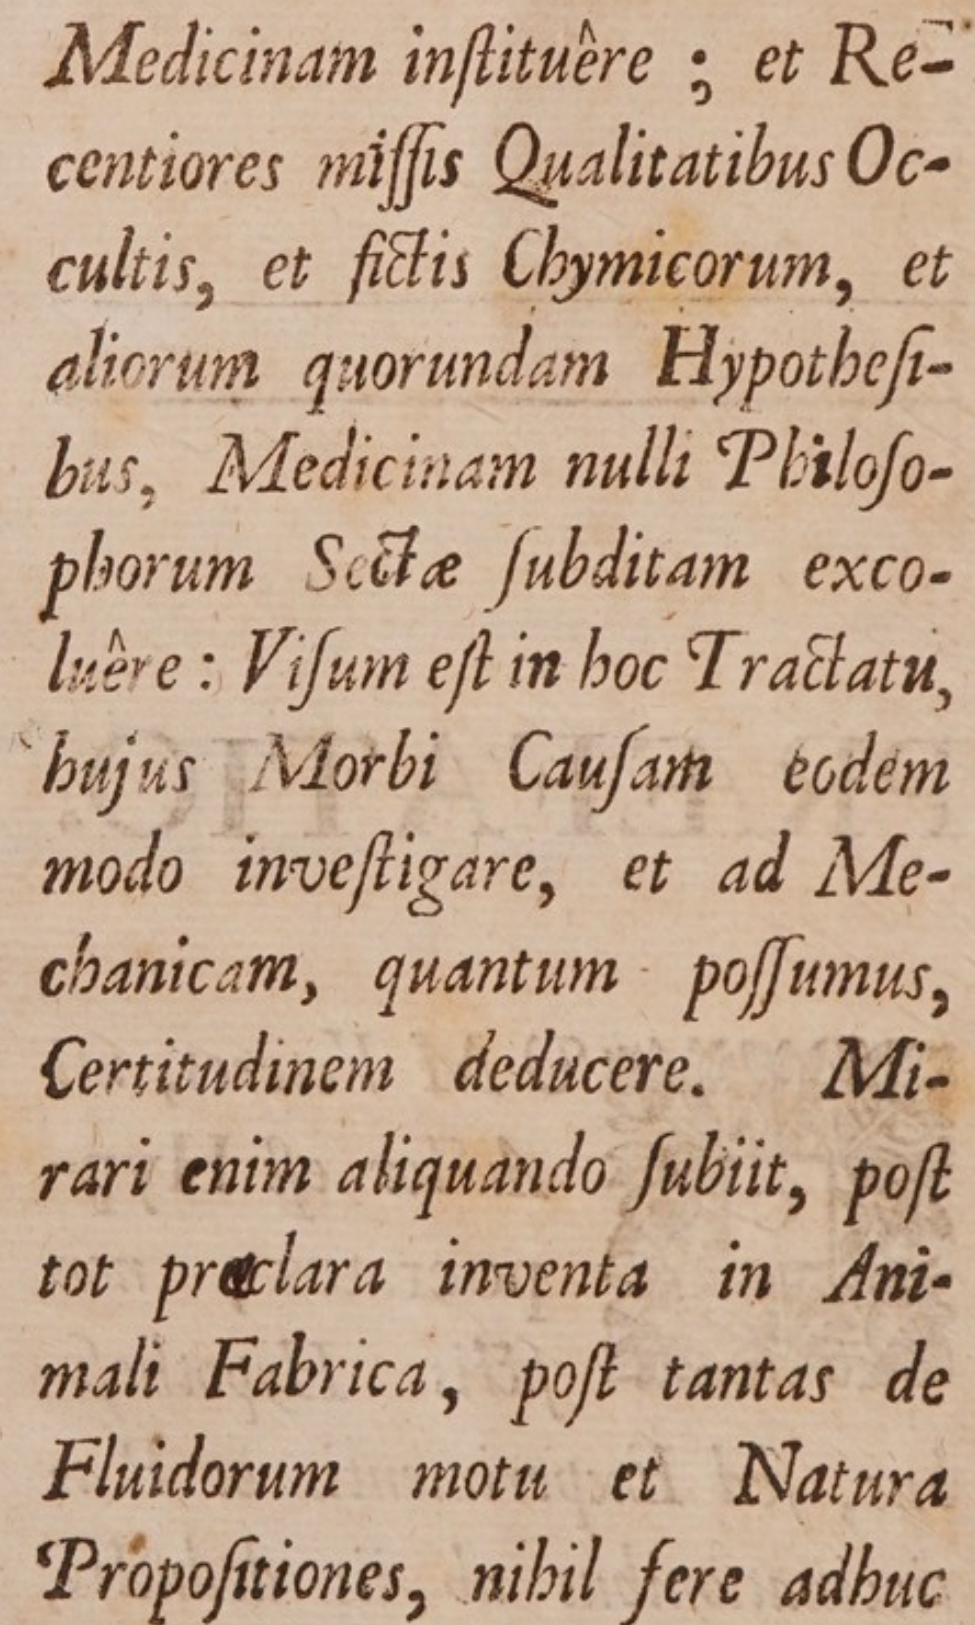 Medicinam inſtituêre ; et Re-
centiores miſſis Qualitatibus Oc-
cultis, et fictis Chymicorum, et
aliorum quorundam Hypotheſi-
bus, Medicinam nulli Philoſo-
phorum Sectæ ſubditam exco-
luêre : Viſum eſt in hoc Tractatu,
hujus Morbi Cauſam eodem
modo inveſtigare, et ad Me-
chanicam, quantum poſſumus,
Certitudinem deducere. Mi-
rari enim aliquando ſubiit, poſt
tot præclara inventa in Ani-
mali Fabrica, poſt tantas de
Fluidorum motu et Natura
Propoſitiones, nihil fere adhuc